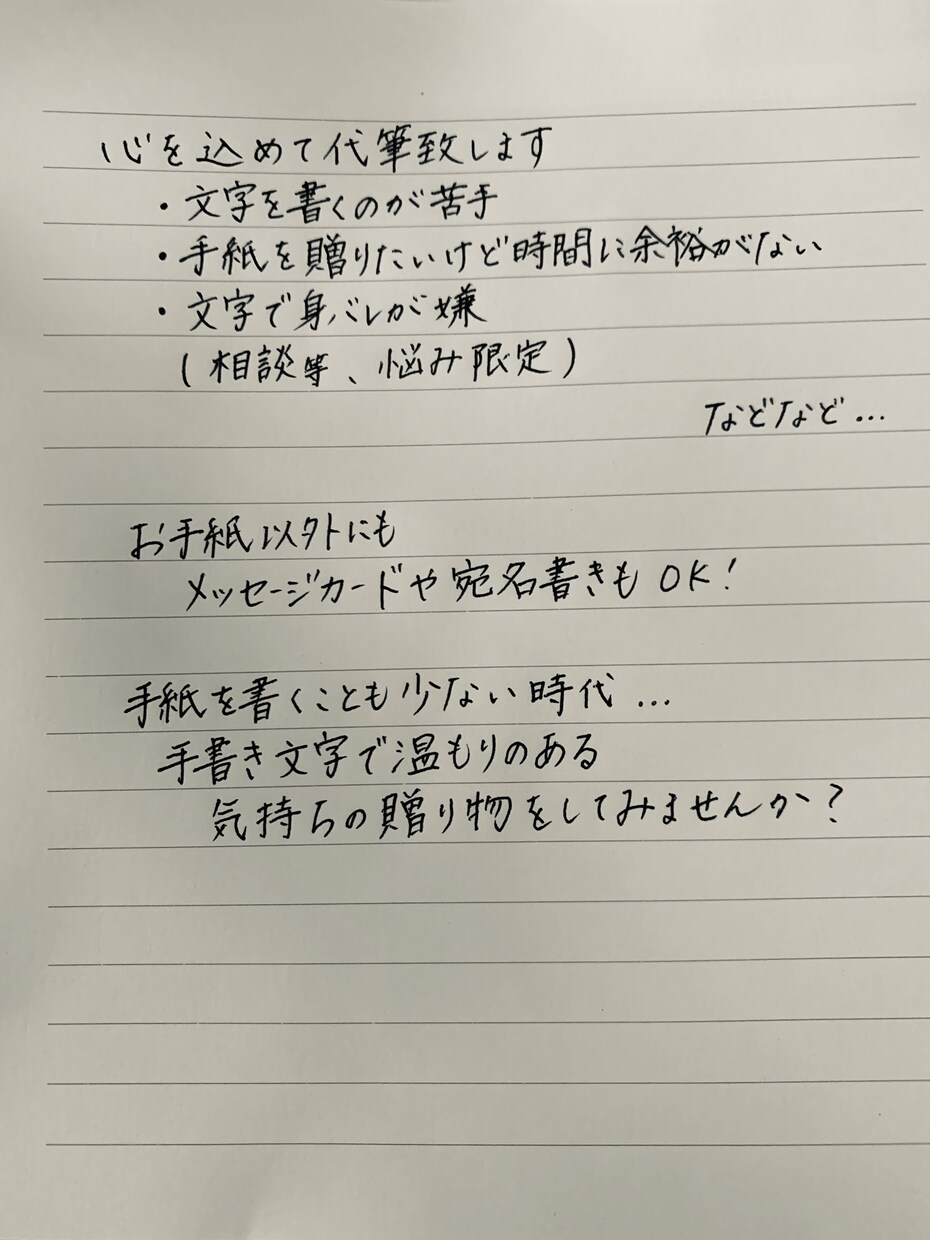 心を込めて代筆致します
・文字を書くのが苦手
・手紙を贈りたいけど時間に余裕がない
・文字で身バレが嫌
(相談等、悩み限定)
などなど…
お手紙以外にも
メッセージカードや宛名書きもOK!
手紙を書くことも少ない時代…
手書き文字で温もりのある
気持ちの贈り物をしてみませんか?